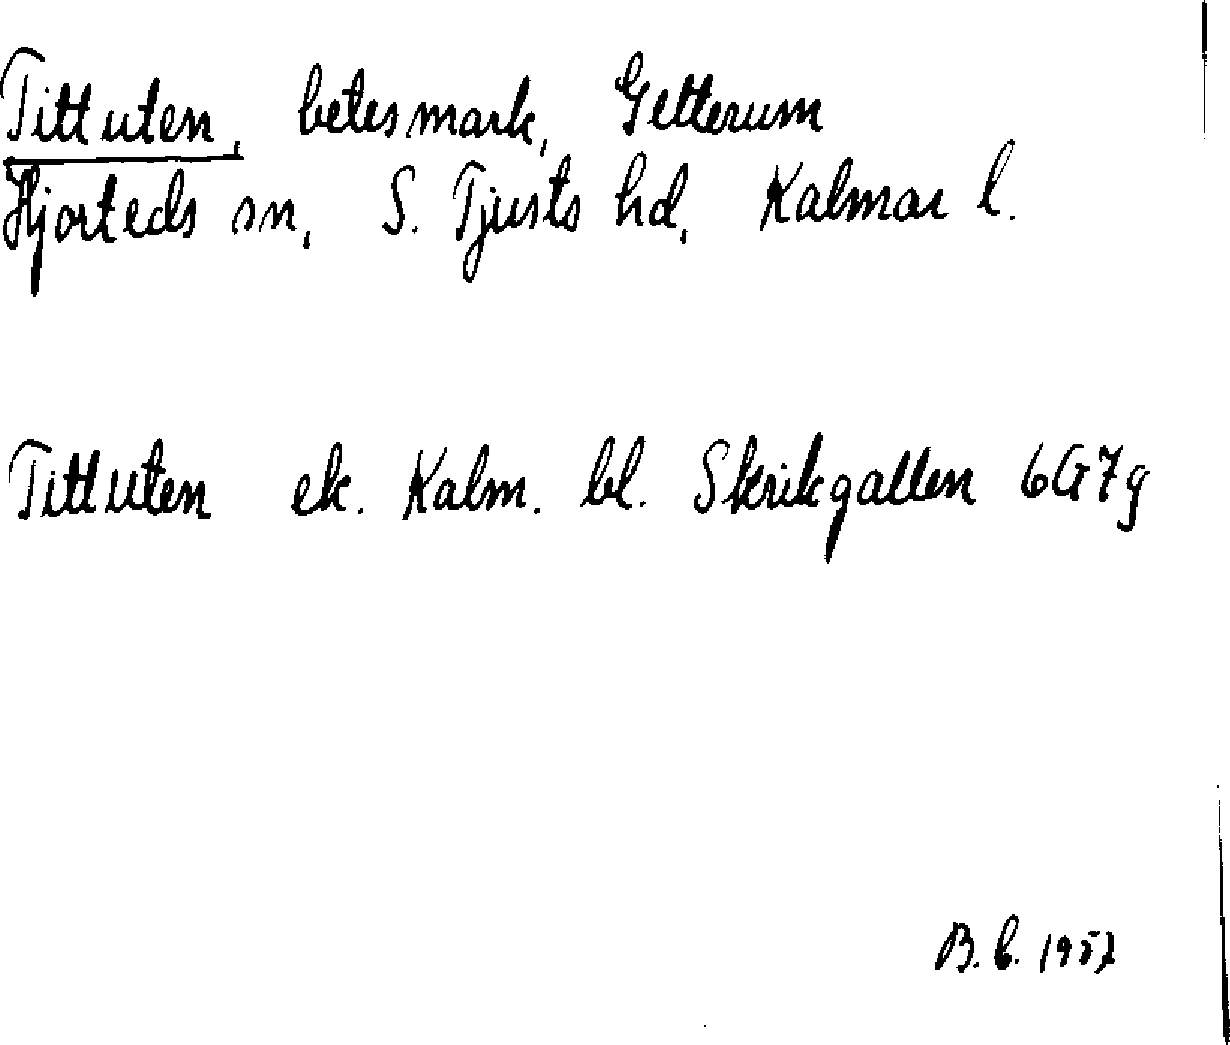 Tittuten, betesmark, Getterum
Hjorteds sn, S. Tjusts hd, Kalmar l.
Tittuten ek. Kalm. bl. Skrikgallen 6G7g
B.b. 1957